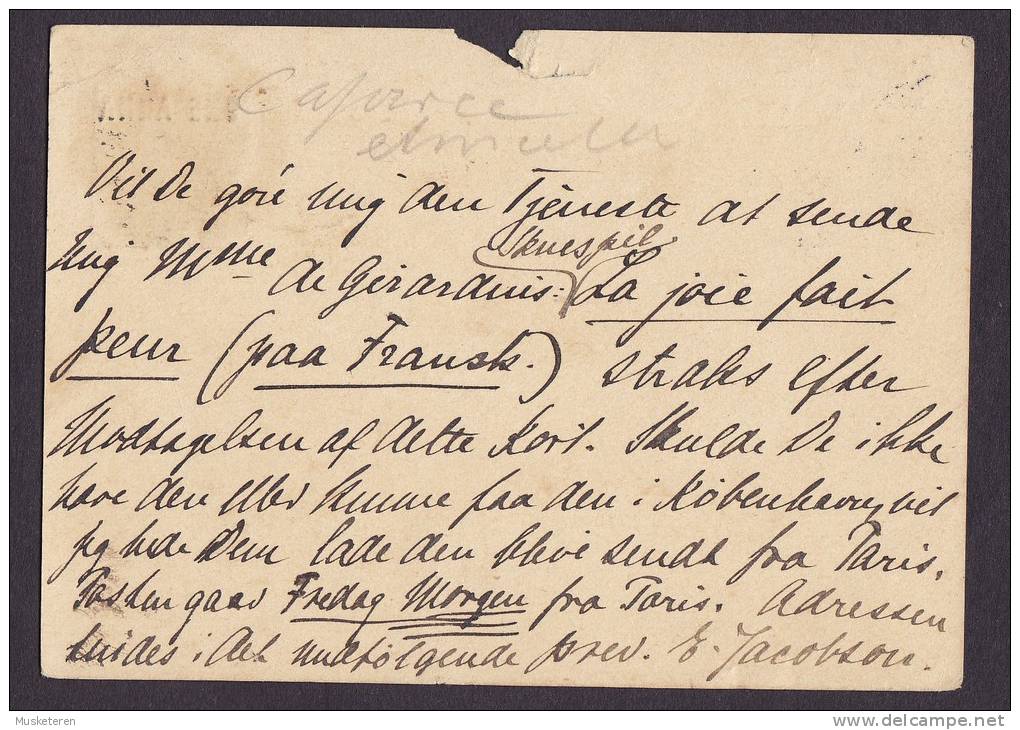 Vil De göre mig den Tjeneste at sende
Skuespil
mig Mme de Girardins: La joie fait
peur (paa Fransk.) straks efter
Modtagelsen af dette Kort. Skulde De ikke
have den eller kunne faa den i København, vil
jeg bede Dem lade den blive sendt fra Paris.
Posten gaar Fredag Morgen fra Paris. Adressen
findes i det medfølgende brev. E. Jacobson.
Musketeren
http://www.delcampe.net